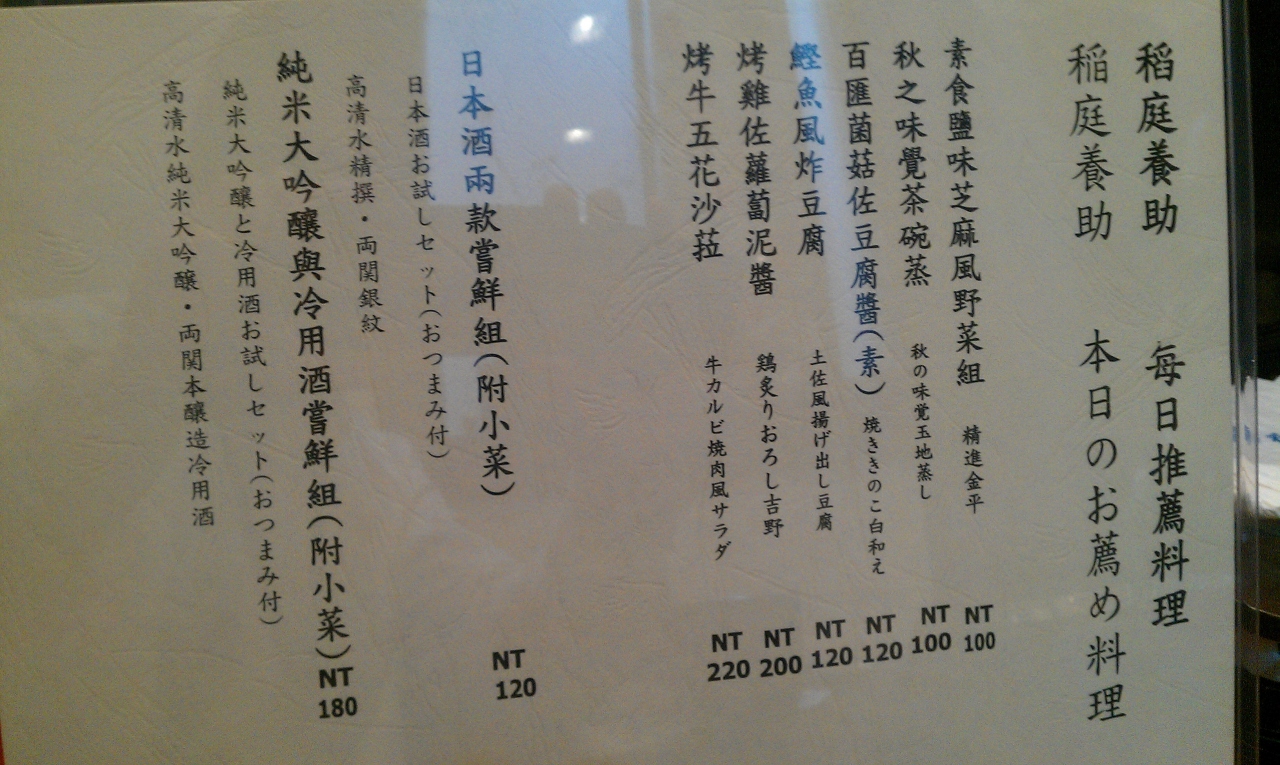 稻庭養助 每日推薦料理
稲庭養助 本日のお薦め料理
素食鹽味芝麻風野菜組 精進金平 NT 100
秋之味覺茶碗蒸 秋の味覚玉地蒸し NT 100
百匯菌菇佐豆腐醬(素) 焼ききのこ白和え NT 120
鰹魚風炸豆腐 土佐風揚げ出し豆腐 NT 120
烤雞佐蘿蔔泥醬 鶏炙りおろし吉野 NT 200
烤牛五花沙菈 牛カルビ焼肉風サラダ NT 220
日本酒兩款嘗鮮組(附小菜) NT 120
日本酒お試しセット(おつまみ付)
高清水精撰・両関銀紋
純米大吟釀與冷用酒嘗鮮組(附小菜) NT 180
純米大吟醸と冷用酒お試しセット(おつまみ付)
高清水純米大吟醸・両関本醸造冷用酒